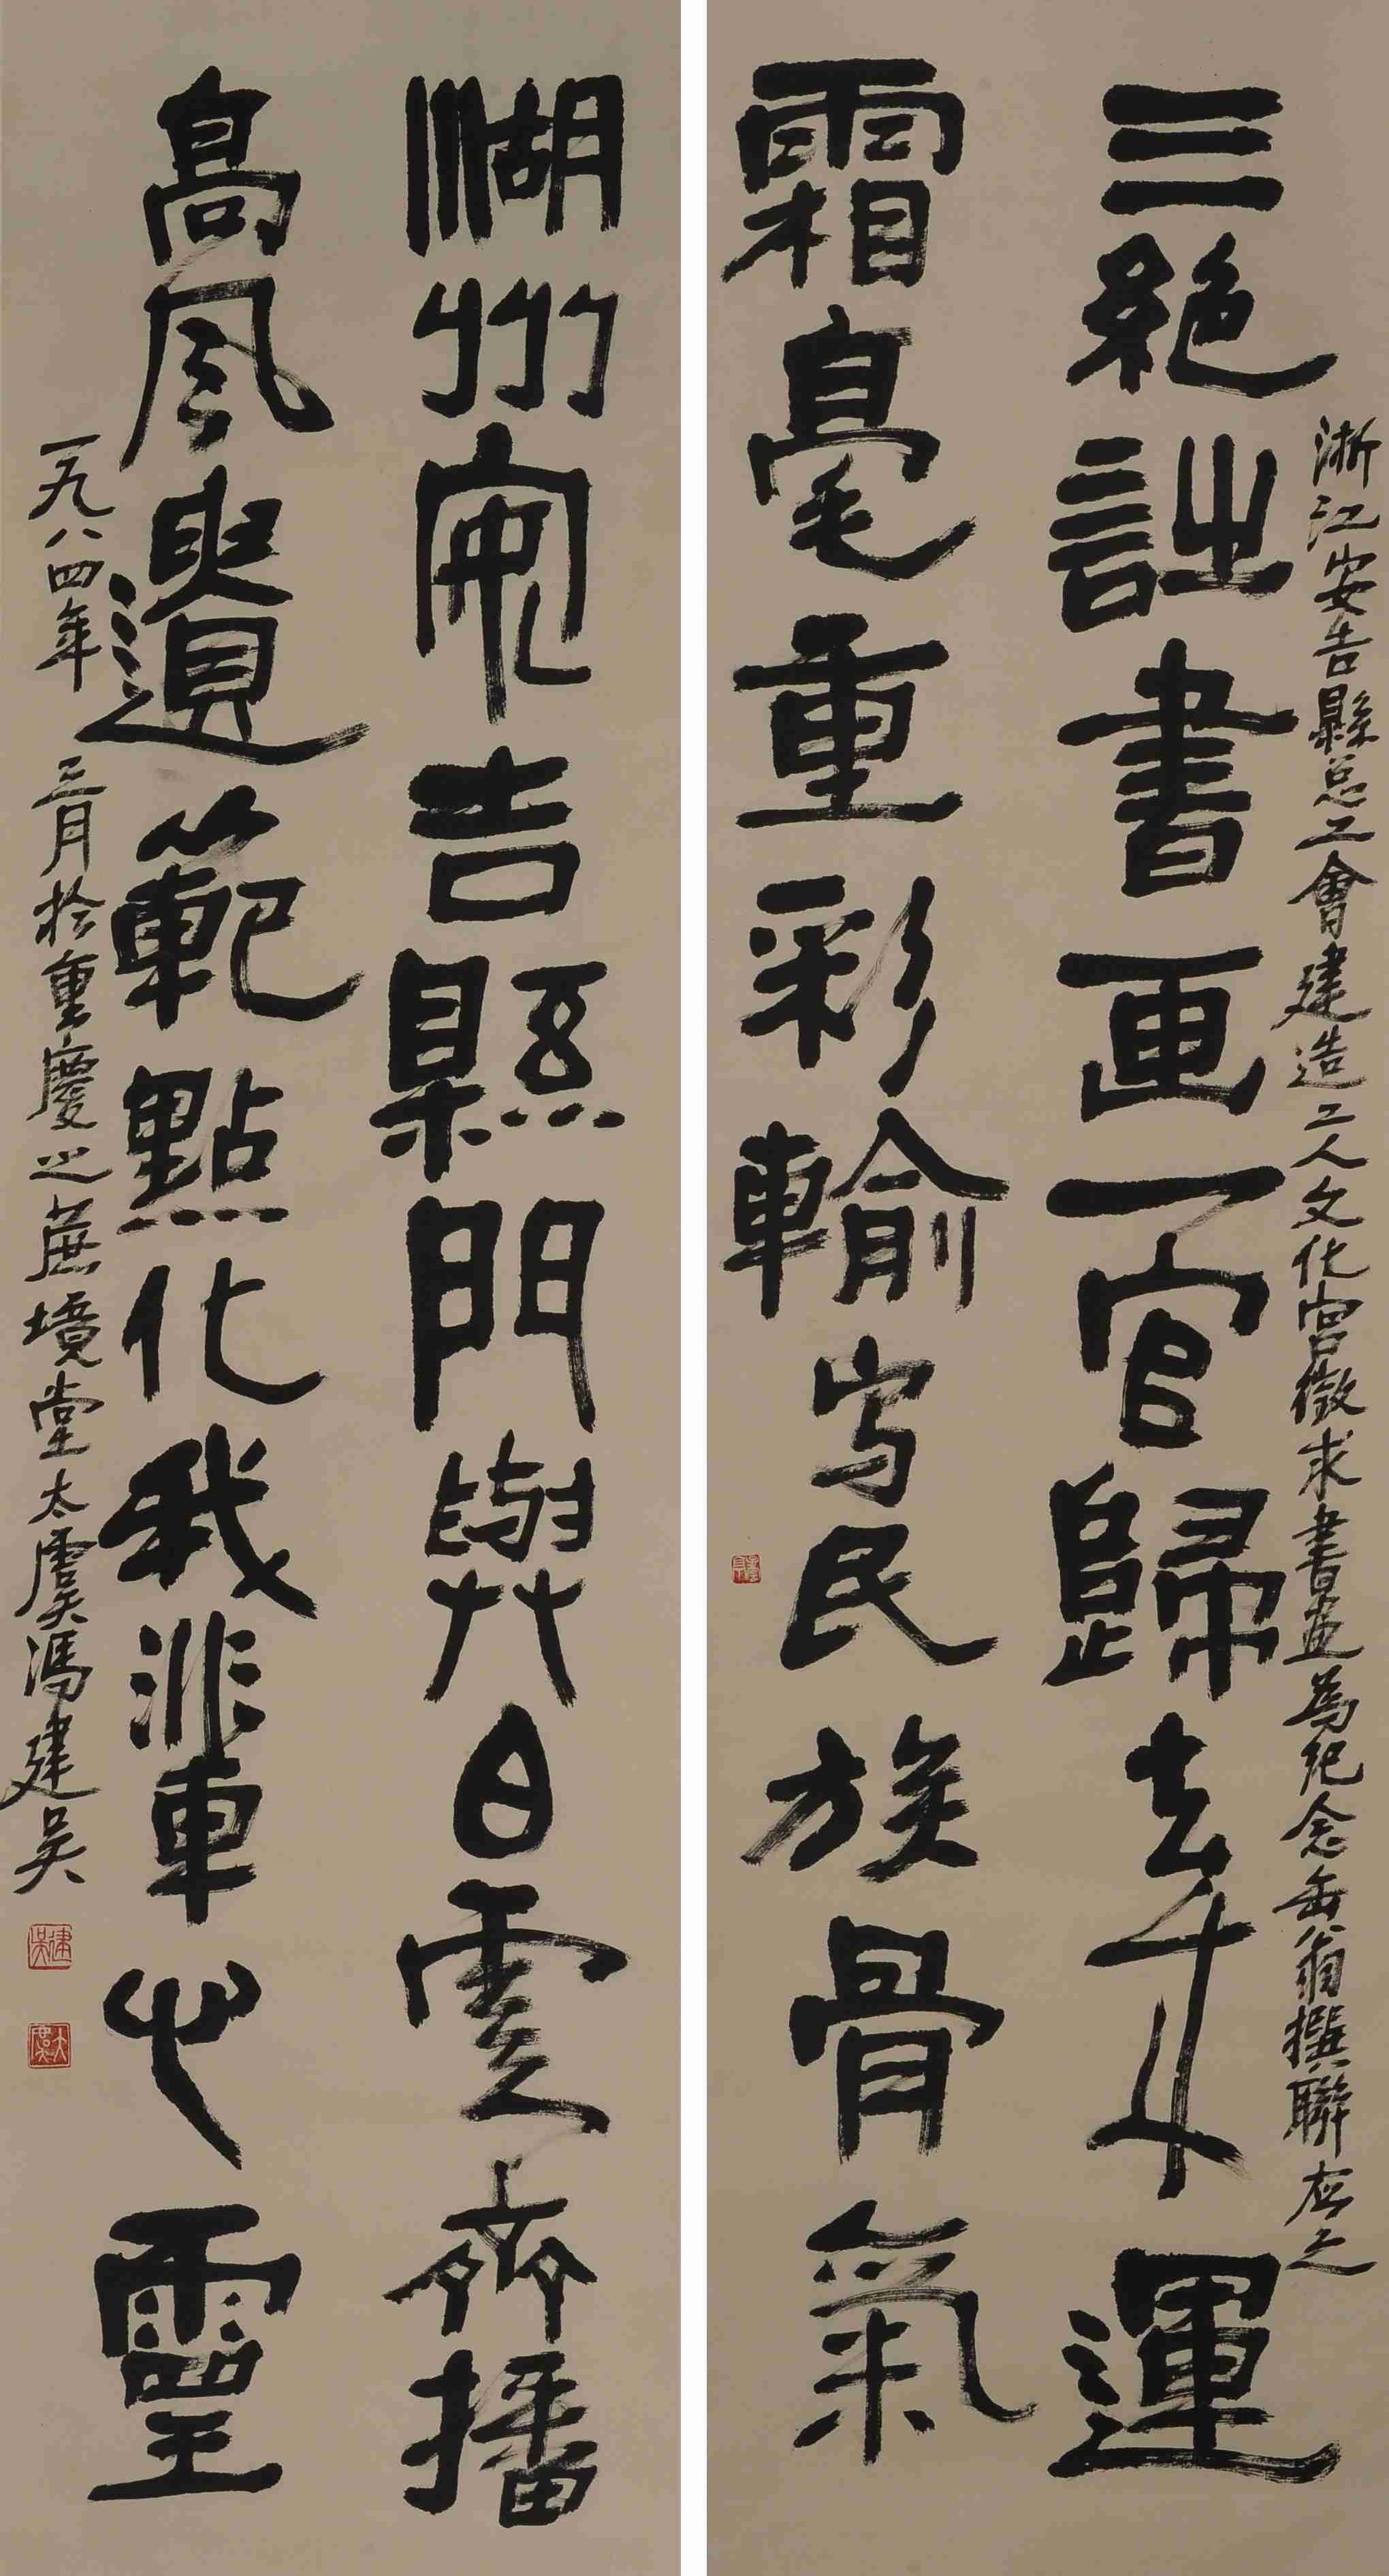 浙江安吉縣总工會建造工人文化宫徵求書畫為纪念缶翁撰聯应之
三絕詩書画一官歸去來運
霜毫重彩輸写民族骨氣
湖州安吉縣門與白雲齊播
高風遺範點化我輩心靈
一九八四年三月於重慶之蔗境堂太虞馮建吳
建吳
太虞